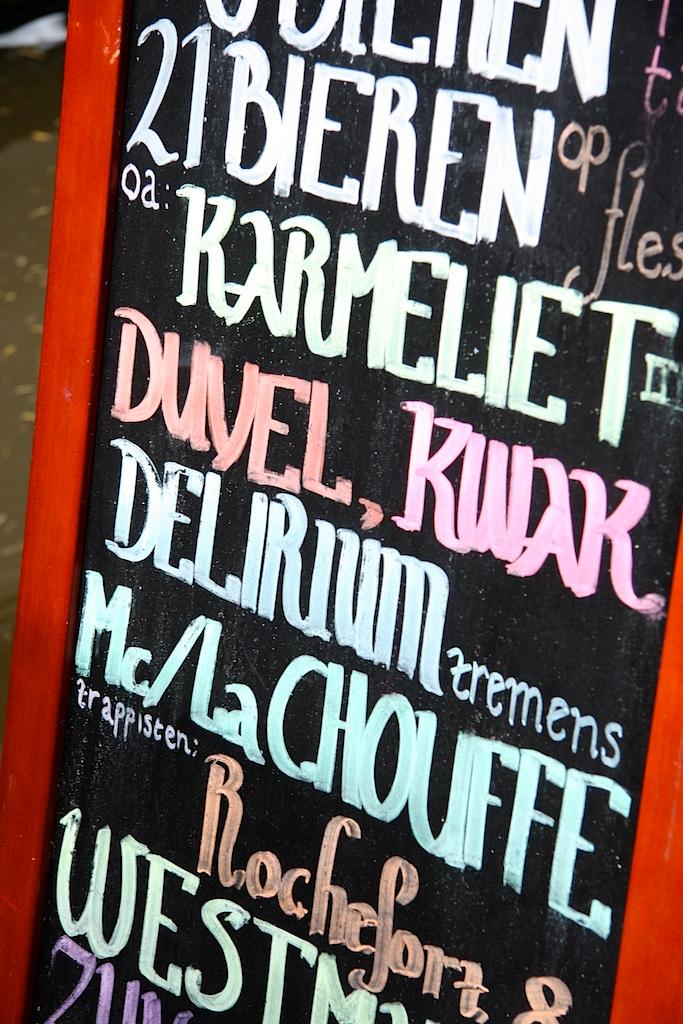 BIEREN
21 BIEREN op fles
oa: KARMELIET
DUVEL, KWAK
DELIRIUM tremens
Mc/La CHOUFFE
trappisten:
Rochefort, 8